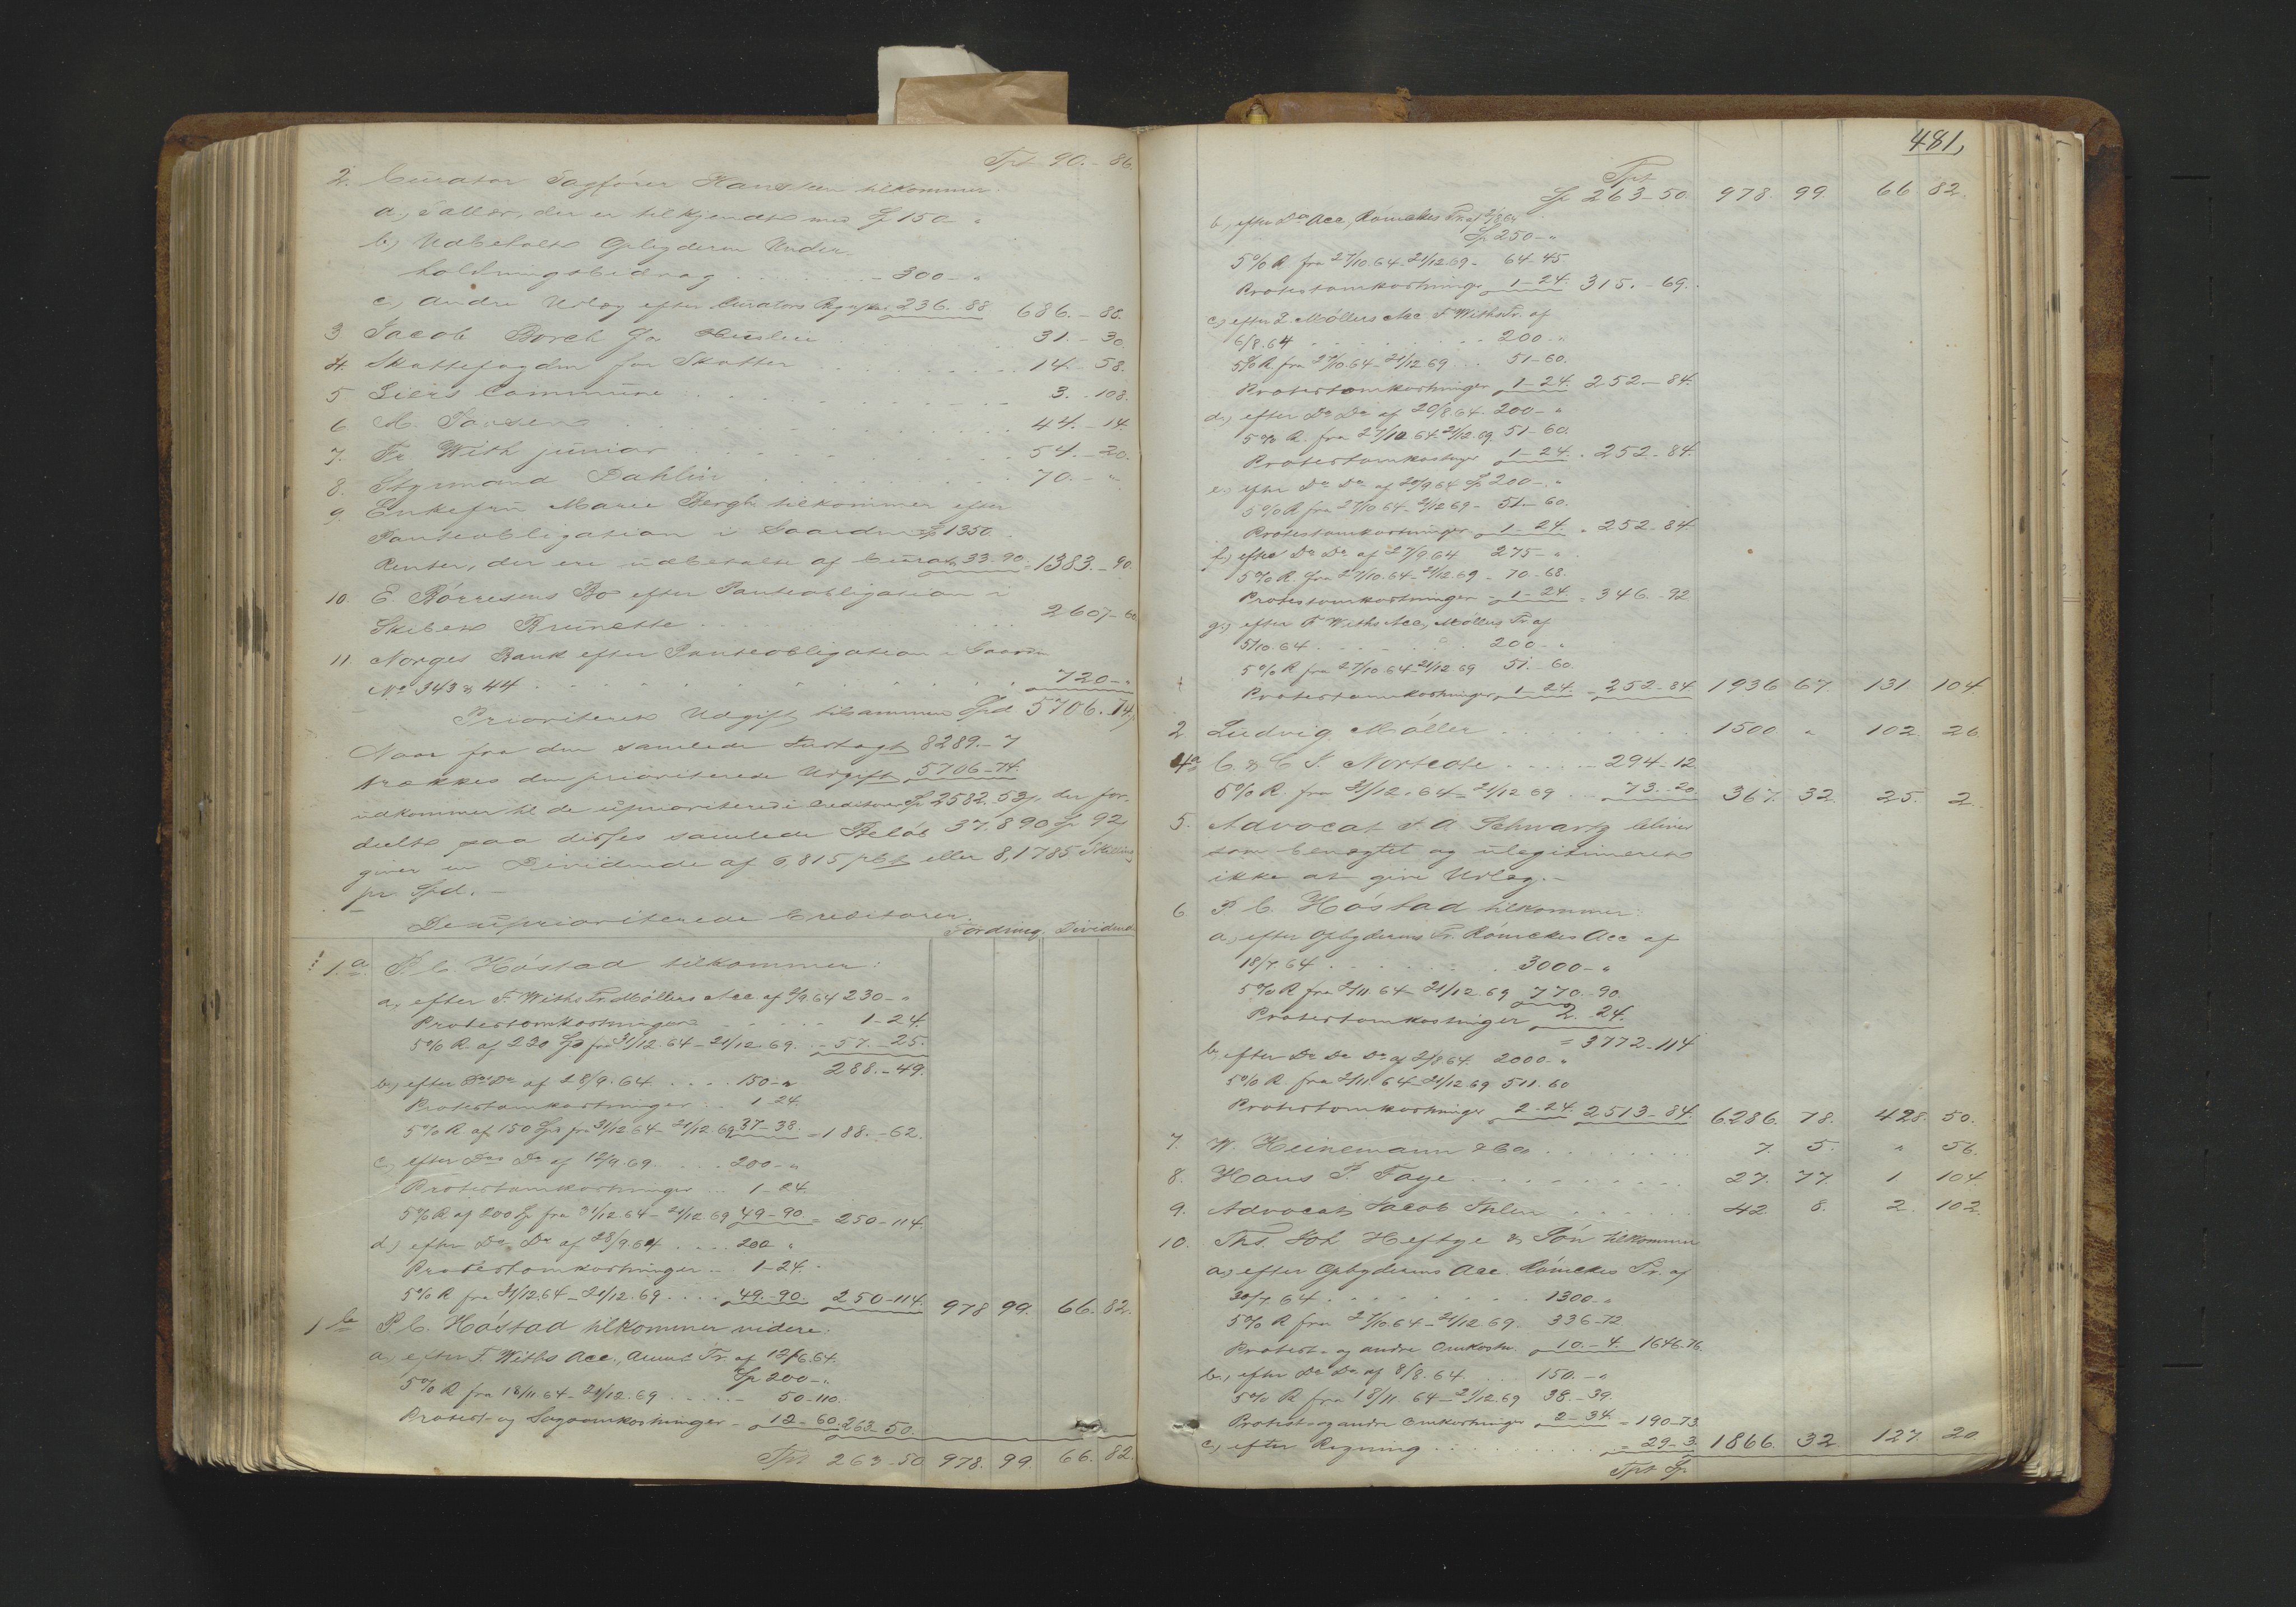 Tpt 90.-86.
2. Curator Sagfører Hansteen tilkommer.
a, Salær, der er tilkjendt med Sp 150 - "
b, Udbetalt Opbyderen Under-
holdningsbidrag . . . . - 300 - "
c, Andre Udlæg efter Curators Regnskab 236.88 686.-88.
3 Jacob Borch for Huusleie 31.-30.
4. Skattefogden for Skatter . . . 14.-58.
5 Liers Commune . . . 3.-108.
6 M. . . . 44.-14.
7. Fr. With junior . . . 54.-20.
8. Styrmand Dahlin . . . 70.- "
9. Enkefru Maren Bergh tilkommer efter
Panteobligation i Gaarden Sp 1350.
Renter, der ere udbetalte af Curator 33-90 = 1383.-90.
10. E. Børresens Bo efter Panteobligation i
Skibet Brunette . . . 2607-60
11. Norges Bank efter Panteobligation i Gaarden
No 343 & 44 . . . 720- "
Prioriteret Udgift tilsammen Spd 5706.74
Naar fra den samlede Indtægt 8289.-7
trækkes den prioriterede Udgift 5706-74.
udkommer til de uprioriterede Creditorer Sp 2582.53, der for-
deelt paa disses samlede Beløb 37.890 Sp 92
giver en Dividende af 6,815 pCt eller 8,1785 Skilling
pr. Spd. -
De uprioriterede Creditorer.
Fordring. Dividende
1.a P. C. Høstad tilkommer:
a, efter F. Withs Tr. Møllers Acc. af 2/9.64 230- "
Protestomkostninger . . . 1-24.
5% R. af 230 Sp fra 31/12.64-21/12.69. - 57.-25.
288.-49.
b, efter Do Do af 28/9.64. . . . 150- "
Protestomkostninger . . 1-24.
5% R af 150 Sp fra 31/12.64-21/12.69 37-38. = 188.-62.
c, efter Do Do af 12/9.69. . . . 200- "
Protestomkostninger . . 1-24.
5% R af 200 Sp fra 31/12.64-21/12.69 49-90 = 250-114.
d, efter Do Do af 28/9.64. . . . 200 "
Protestomkostninger . . 1-24.
5% R fra 31/12.64-21/12.69. . . . 49.-90. 250-114. 978 99. 66. 82.
1 b P. C. Høstad tilkommer videre:
a, efter F. Withs Acc., Tr. af 12/6.64.
Sp 200- "
5% R fra 18/11.64-21/12.69 . . . . - 50-110.
Protest- og Sagsomkostninger - 12-60. 263-50.
Tpt 263-50 978. 99. 66. 82.
481,
Tpt
Sp 263-50. 978. 99. 66. 82.
b, efter Do Acc, Rómckes Tr. af 12/8 64
Sp 250- "
5% R fra 27/10.64-21/12.69- 64-45.
Protestomkostninger 1-24. 315.-69.
c, efter L. Møllers Acc. F Withs Tr. af
6/8.64 . . . 200- "
5% R fra 27/10.64-21/12.69 . . . 51-60.
Protestomkostninger 1-24. 252.-84.
d, efter Do Do af 20/8.64. 200- "
5% R. fra 27/10 64-21/12.69. 51-60.
Protestomkostninger 1-24. . 252.-84.
e, efter Do Do af 20/9 64 Sp 200- "
5% R fra 27/10 64-21/12 69 - 51-60.
Protestomkostninger 1-24. . 252-84.
f, efter Do Do af 27/9.64 275- "
5% R. fra 27/10.64-21/12.69 - 70-68.
Protestomkostninger - 1-24. = 346.-92
g, efter F Withs Acc, Møllers Tr. af
5/10.64. . . . 200- "
5% R fra 27/10 64-21/12 69 51-60.
Protestomkostninger 1-24. - 252-84. 1936 67. 131. 104
2. Ludvig Møller . . . 1500 " 102. 26.
4a C. & C. J. Northcote . . . - 294-12.
5% R. fra 31/12.64-21/12 69 . . . 73.-20. 367. 32. 25. 2.
5. Advocat F. A. Schwartz bliver
som benægtet og ulegitimeret
ikke at give Udlæg.-
6 P. C. Høstad tilkommer:
a, efter Opbyderens Tr. Rómckes Acc af
18/7.64 . . . 3000- "
5% R fra 2/11.64-21/12 69 770.-90.
Protestomkostninger 2.-24.
= 3772-114
b, efter Do Do Do af 2/8 64. 2000- "
5% R. fra 2/11.64-21/12.69 511.60
Protestomkostninger 2-24. 2513-84. 6286. 78. 428. 50.
7. W. Heinemann & Co . . . 7. 5. " 56.
8. Hans P. Faye . . . 27. 77. 1. 104.
9. Advocat Jacob Ihlen . . . 42. 8. 2. 102.
10. Ths. Joh Heftye & Søn tilkommer
a, efter Opbyderens Acc. Rómckes Tr. af
30/7.64 . . . 1300- "
5% R fra 27/10.64-21/12.69. 336-72.
Protest- og andre Omkostn. 10.-4. 1646-76.
b, efter Do Do af 8/8.64 . . . 150.- "
5% R fra 18/11.64-21/12.69 38.-39.
Protest- og andre Omkostninger 2-34 = 190-73.
c, efter Regning . . . = 29-3. 1866. 32. 127. 20.
Tpt Sp